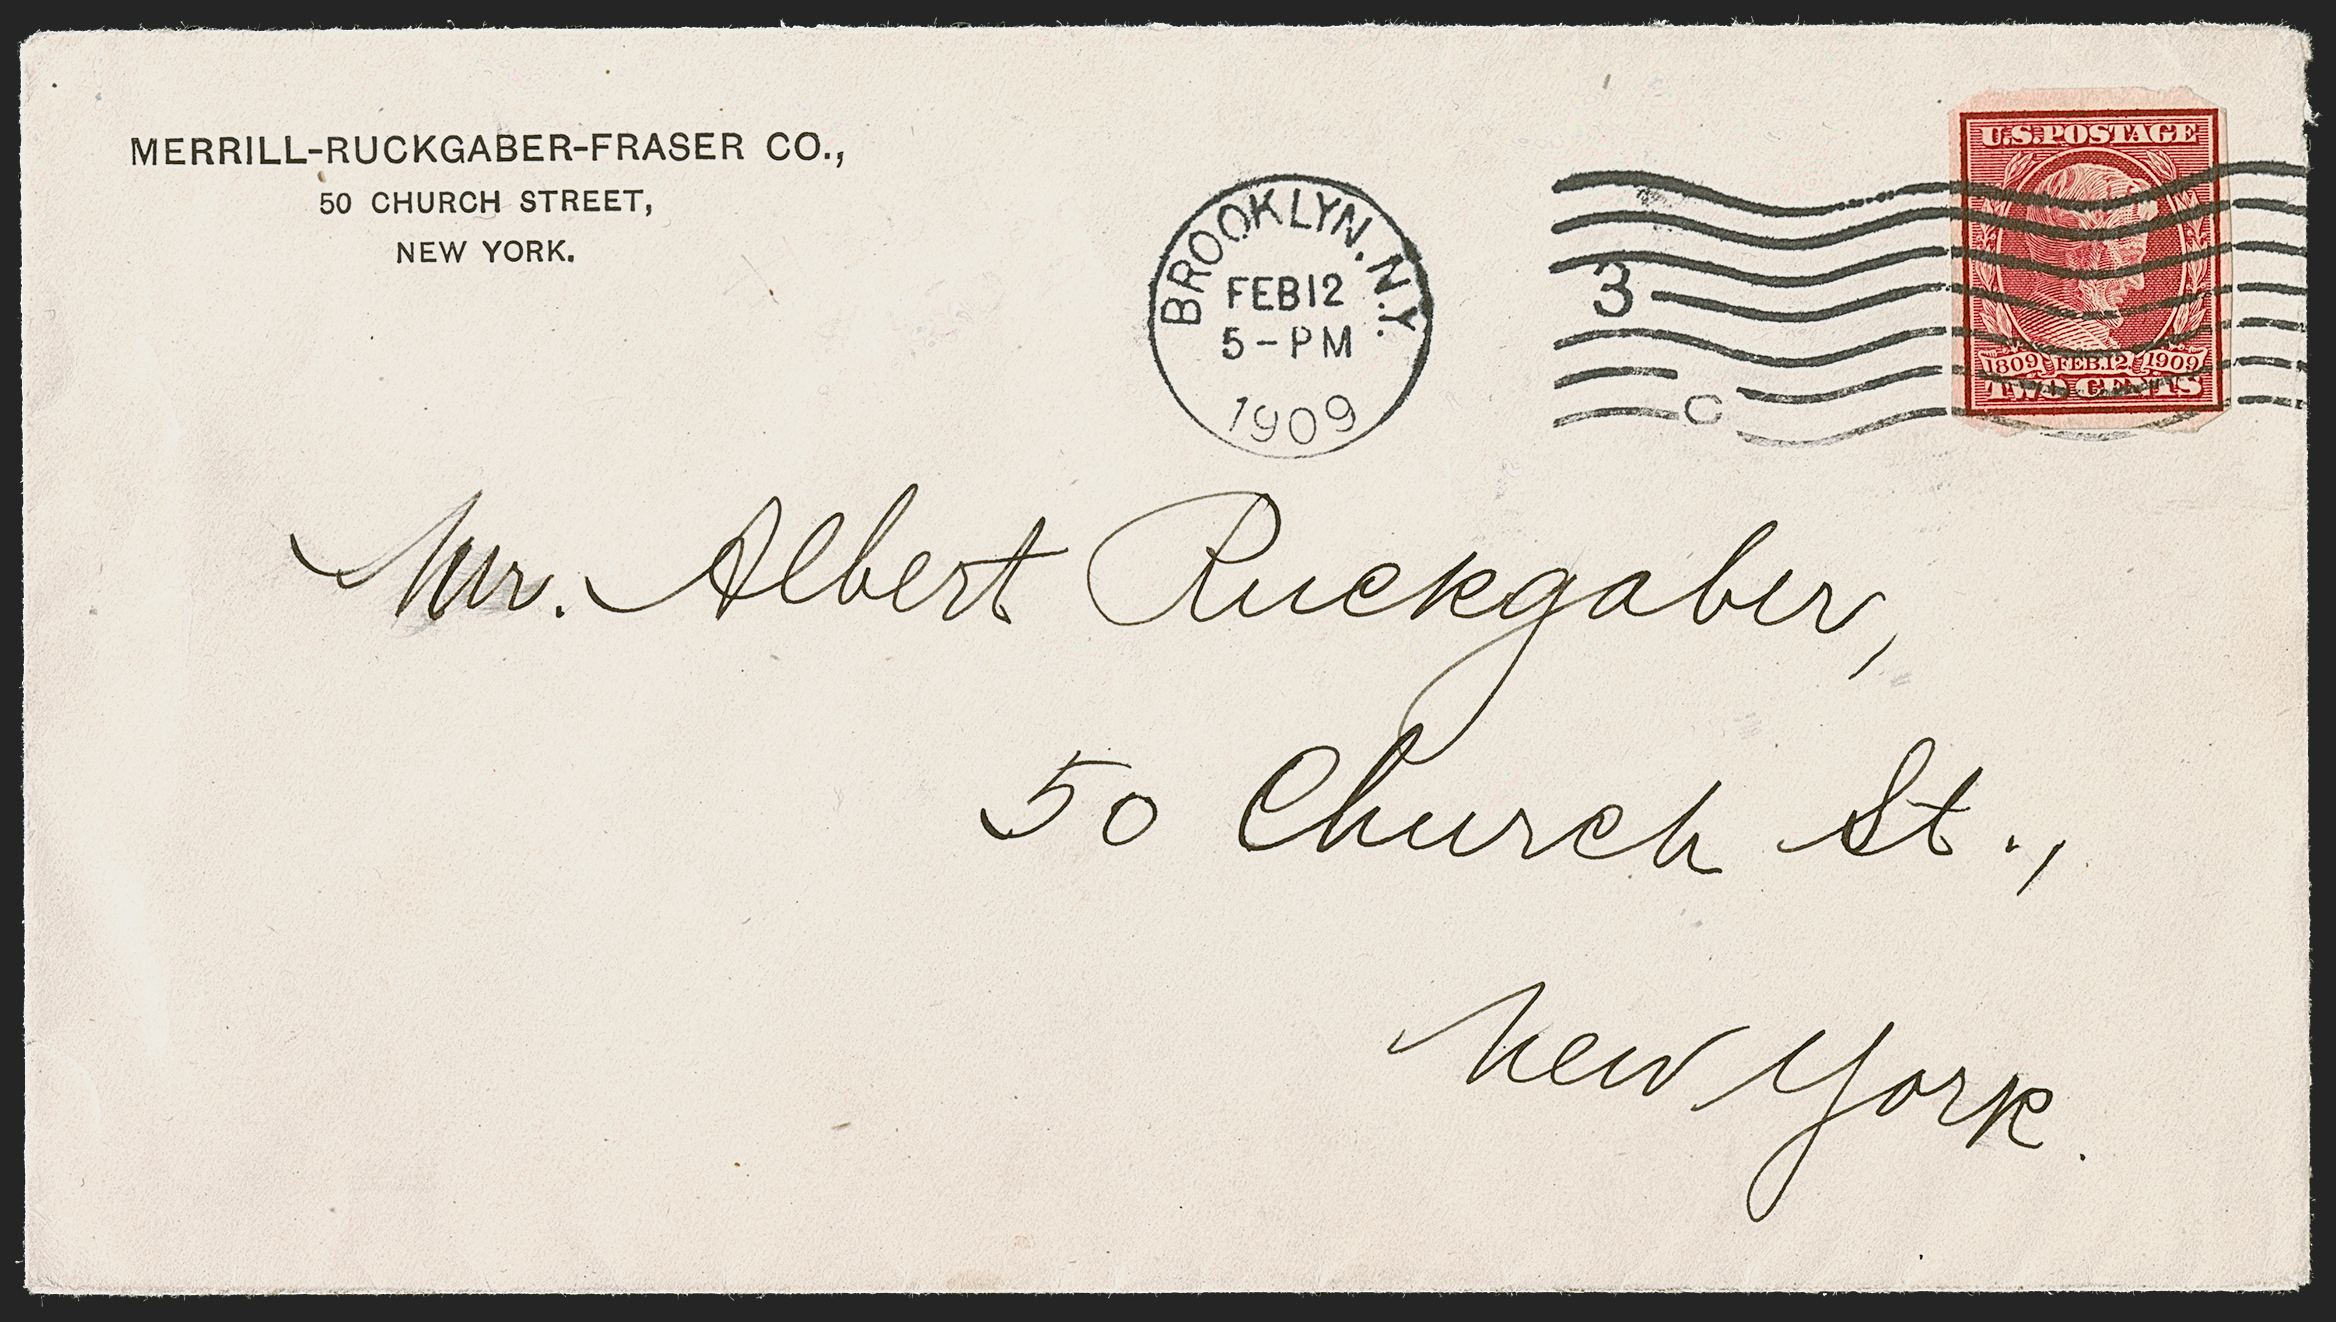 MERRILL-RUCKGABER-FRASER CO.,
50 CHURCH STREET,
NEW YORK.
BROOKLYN. N.Y.
FEB 12
5-PM
1909
3
C
U.S. POSTAGE
1809 FEB. 12 1909
TWO CENTS
Mr. Albert Ruckgaber,
50 Church St.,
New York.